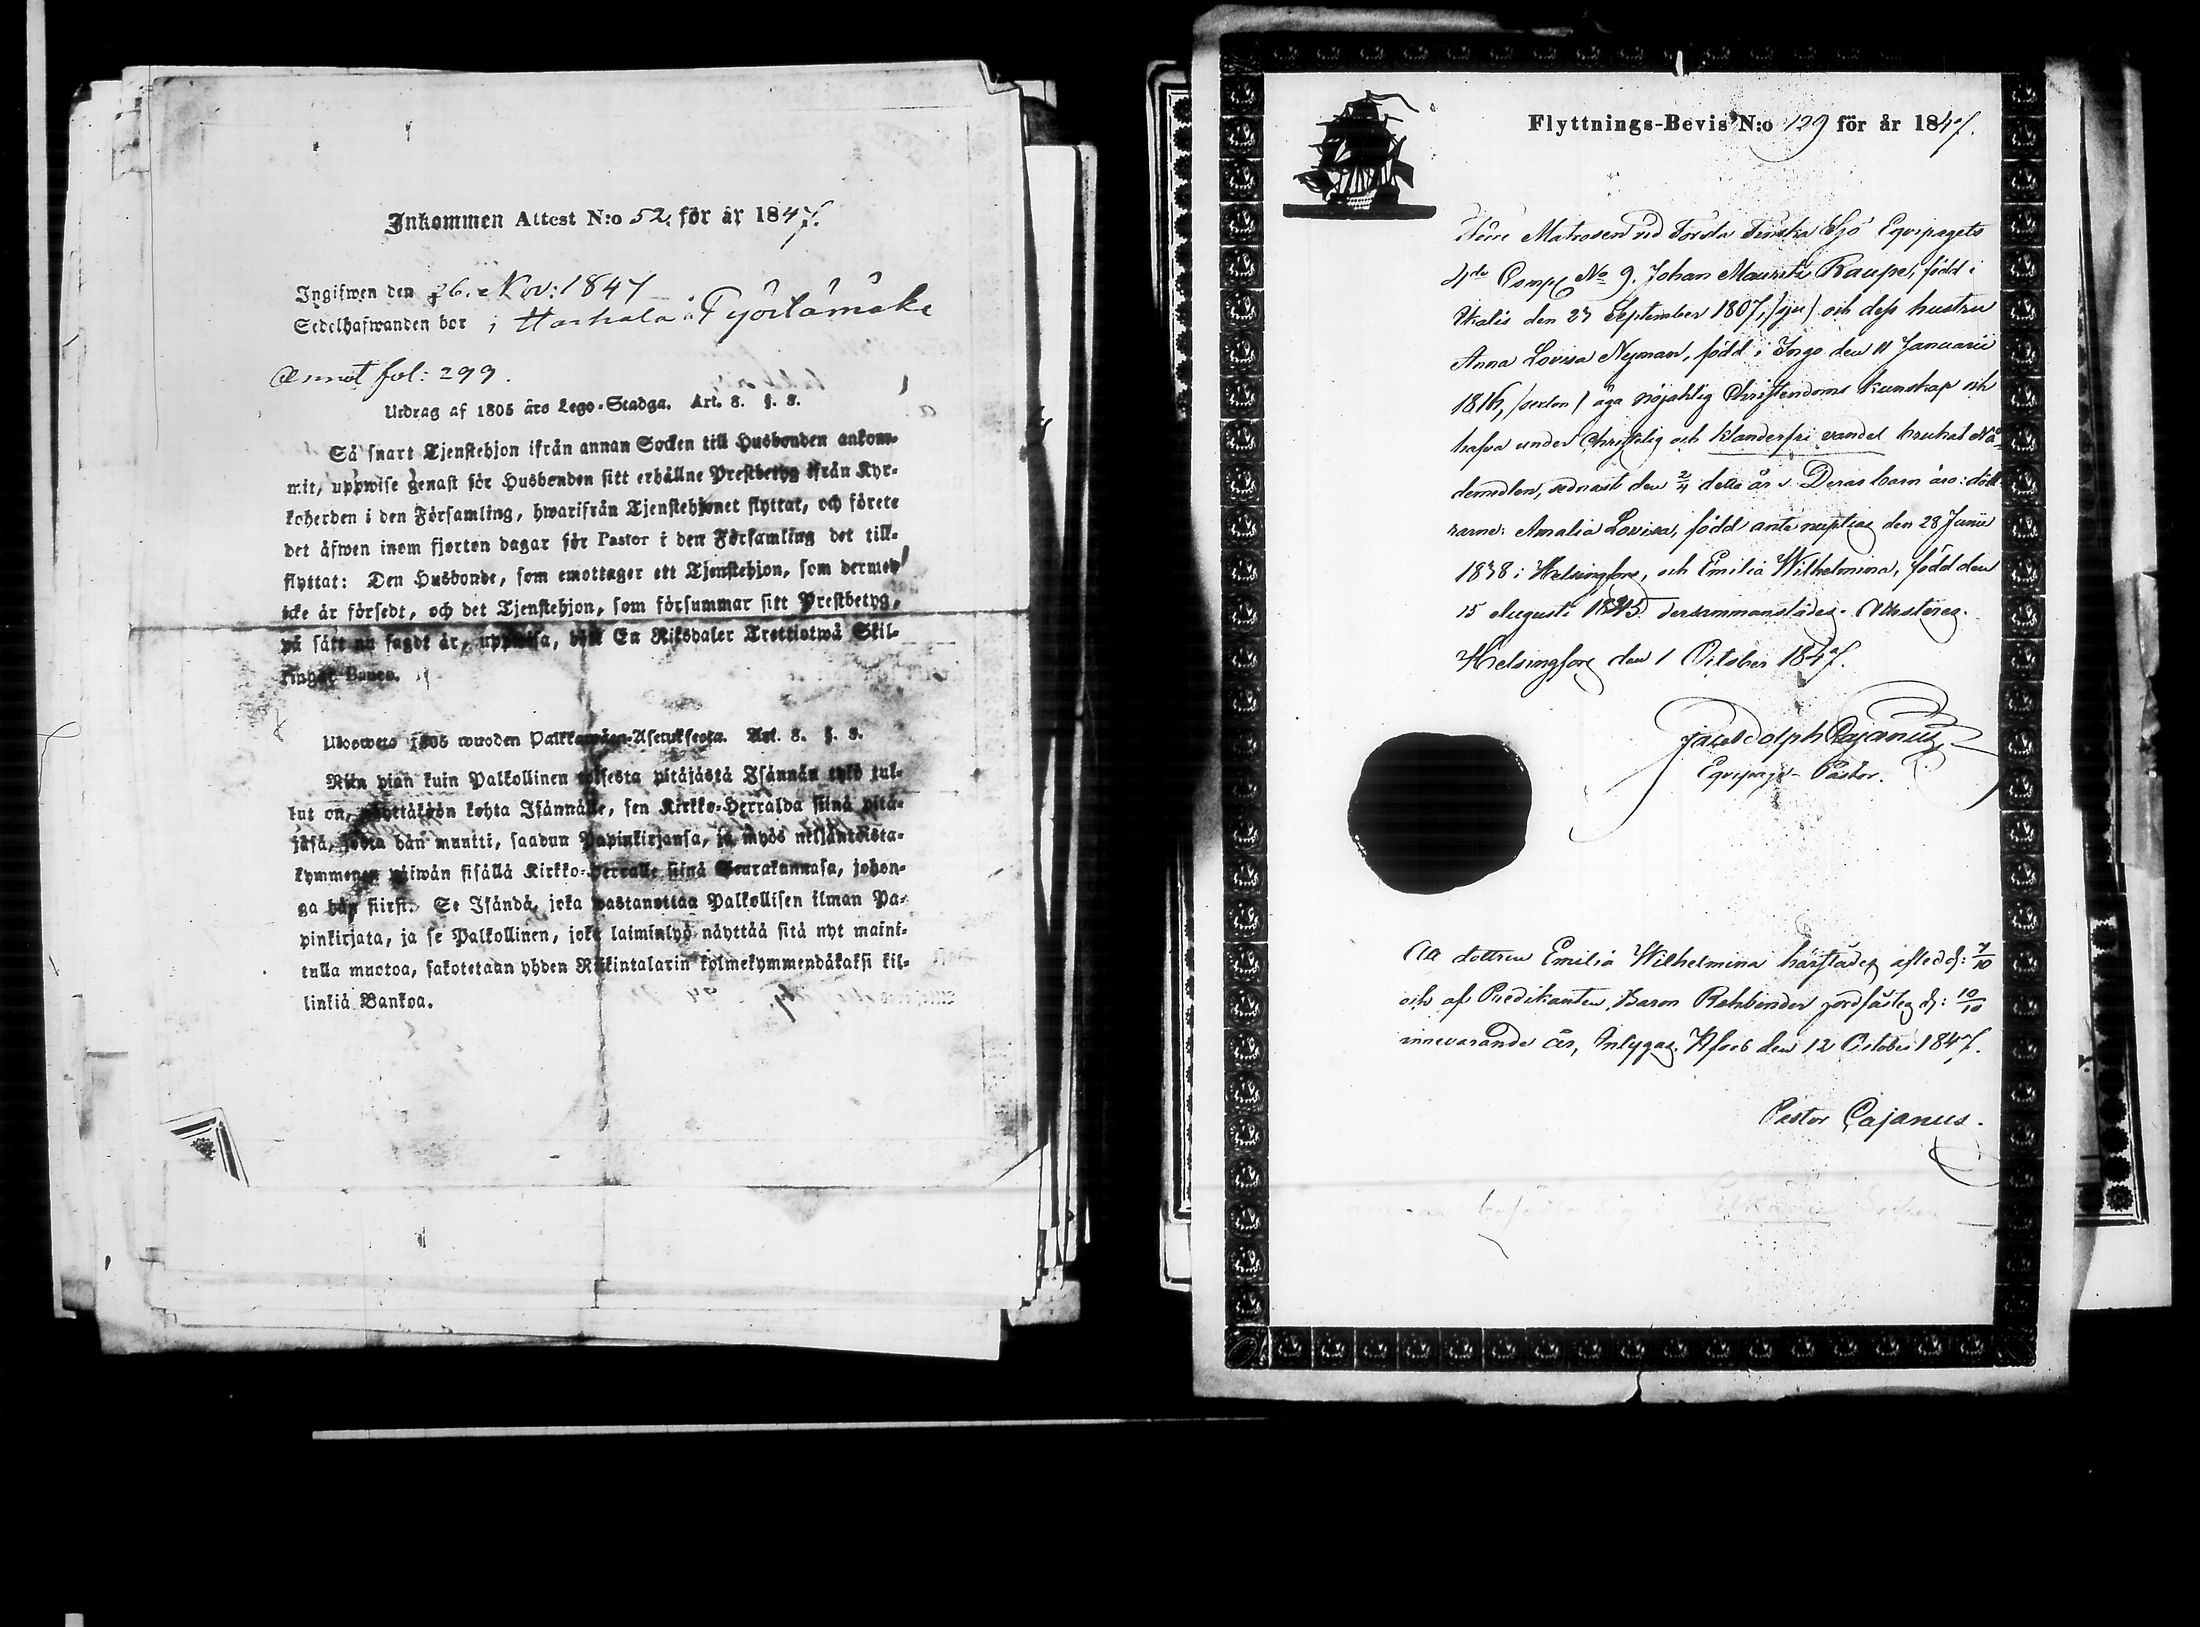 Inkommen Attest N:o 52. för år 1847.
Ingifwen den 26. Nov: 1847
Sedelhafwanden bor i Harhala
fol: 299.
Utdrag af 1805 års Lego-Stadga. Art. 8. §. 8.
Så snart Tjenstehjon ifrån annan Socken till Husbonden ankom-
mit, uppwise genast för Husbonden sitt erhållne Prestbetyg ifrån Kyr-
koherden i den Församling, hwarifrån Tjenstehjonet flyttat, och förete
det äfwen inom fjorton dagar för Pastor i den Församling det till-
flyttat: Den Husbonde, som emottager ett Tjenstehjon, som dermed
icke är försedt, och det Tjenstehjon, som försummar sitt Prestbetyg,
på sätt nu sagdt är, uppwisa, böte En Riksdaler Trettiotwå Skil-
lingar Banco.
Ulosweto 1805 wuoden Palkkawäen-Asetuksesta. Art. 8. §. 8.
Niin pian kuin Palkollinen toisesta pitäjästä Isännän tykö tul-
lut on, näyttäköön kohta Isännälle, sen Kirkko-Herralda siinä pitä-
jäsä, josta hän muutti, saadun Papinkirjansa, ja myös neljäntoista-
kymmenen päiwän sisällä Kirkko-Herralle siinä Seurakunnasa, johon-
ga hän siirsi. Se Isändä, joka wastanottaa Palkollisen ilman Pa-
pinkirjata, ja se Palkollinen, joka laiminlyö näyttää sitä nyt maini-
tulla muotoa, sakotetaan yhden Riikintalarin kolmekymmendäkaksi kil-
linkiä Bankoa.
Flyttnings-Bevis N:o 129 för år 1847.
Förre Matrosen vid Första Finska Sjö Equipagets
4de Comp. No 9. Johan Mauritz Raupe, född i
Ikalis den 23 September 1807, /sju/ och dess hustru
Anna Lovisa Nyman, född i Ingo den 11 Januarii
1816, /sexton/ äga nöjaktig Christendoms kunskap och
hafva under Christelig och klanderfri vandel brukat Nå-
demedlen, sednast den 2/4 detta år. Deras barn äro: dött-
rarne: Amalia Lovisa, född ante nuptias den 28 Junii
1838 i Helsingfors, och Emilia Wilhelmina, född den
15 Augusti 1845 dersammanstädes. Attesteras.
Helsingfors den 1 October 1847.
Jacob Adolph Cajanus
Equipage-Pastor.
Att dottren Emilia Wilhelmina härstädes afled d: 7/10
och af Predikanten, Baron Rehbinder jordfästes d: 10/10
innevarande år, intygas. H:fors den 12 October 1847.
Pastor Cajanus.